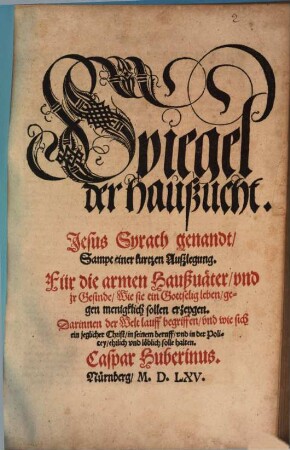 2
Spiegel
der Haußzucht.
Jesus Syrach genandt/
Sampt einer kurtzen Außlegung.
Für die armen Haußuäter/vnd
jr Gesinde/ Wie sie ein Gottselig leben/ge-
gen menigklich sollen erzeygen.
Darinnen der Welt lauff begriffen/vnd wie sich
ein jeglicher Christ/in seinem beruff/vnd in der Poli-
cey/ehrlich vnd löblich solle halten.
Caspar Huberinus.
Nürnberg/ M. D. LXV.